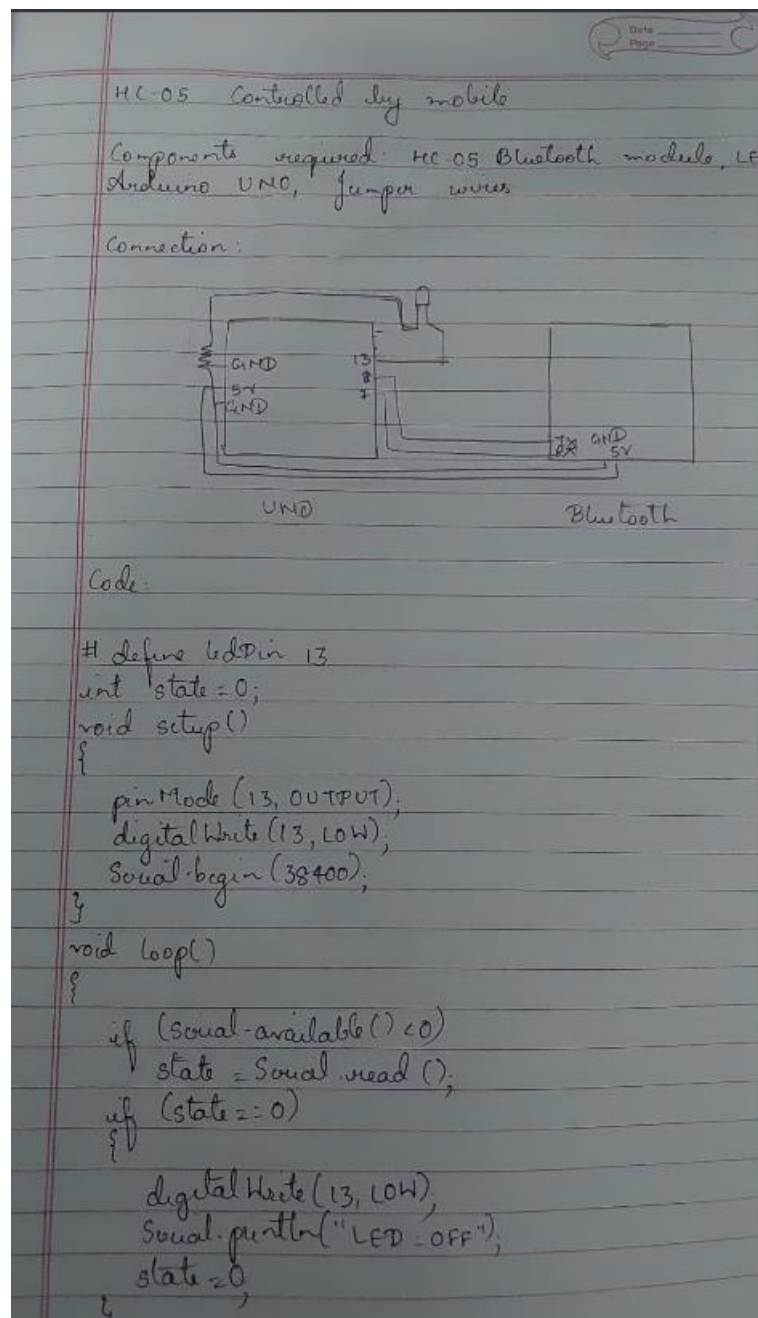 Date
Page
HC-05 Controlled by mobile
Components required: HC-05 Bluetooth module, LE
Arduino UNO, Jumper wires
Connection:
GND
5V
GND
13
8
7
TX
RX
GND
5V
UNO
Bluetooth
Code:
# define ledPin 13
int state = 0;
void setup()
{
pinMode (13, OUTPUT);
digitalWrite (13, LOW);
Serial.begin (38400);
}
void loop()
{
if (serial.available() <0)
state = Serial.read ();
if (state == 0)
{
digitalWrite (13, LOW);
Serial.println("LED : OFF");
state = 0;
}